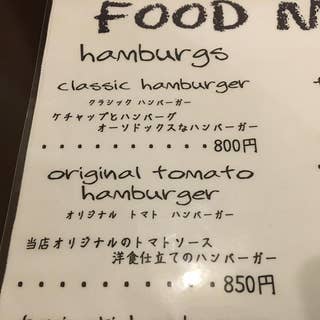 FOOD
hamburgs
classic hamburger
クラシック ハンバーガー
ケチャップとハンバーグ
オーソドックスなハンバーガー
・・・・・・・・・・800円
original tomato
hamburger
オリジナル トマト ハンバーガー
当店オリジナルのトマトソース
洋食仕立てのハンバーガー
・・・・・・・・・・850円